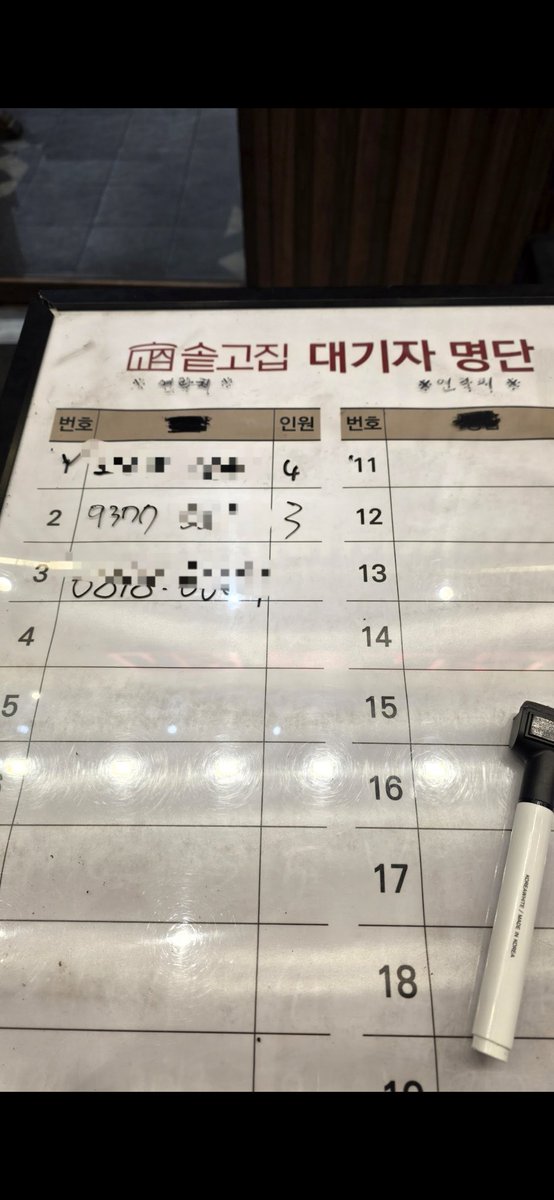 솥고집 대기자 명단
※연락처※ ※연락처※
번호 인원 번호
4 11
2 9377 3 12
3 13
4 14
5 15
16
17
18
19
KOREAWHITE / MADE IN KOREA